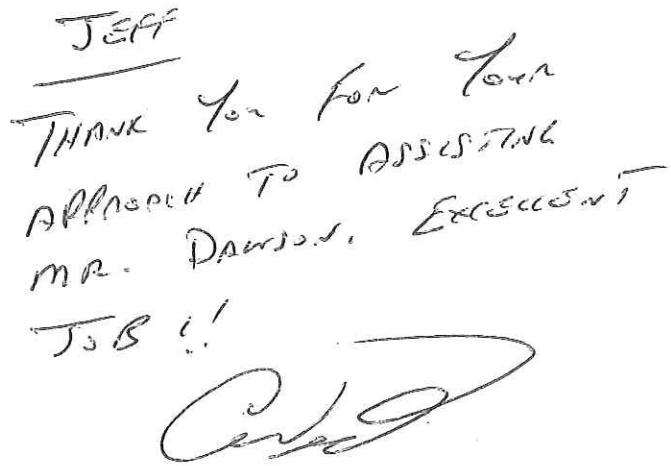 JEFF
THANK YOU FOR YOUR
APPROACH TO ASSISTING
MR. DAWSON. EXCELLENT
JOB!!